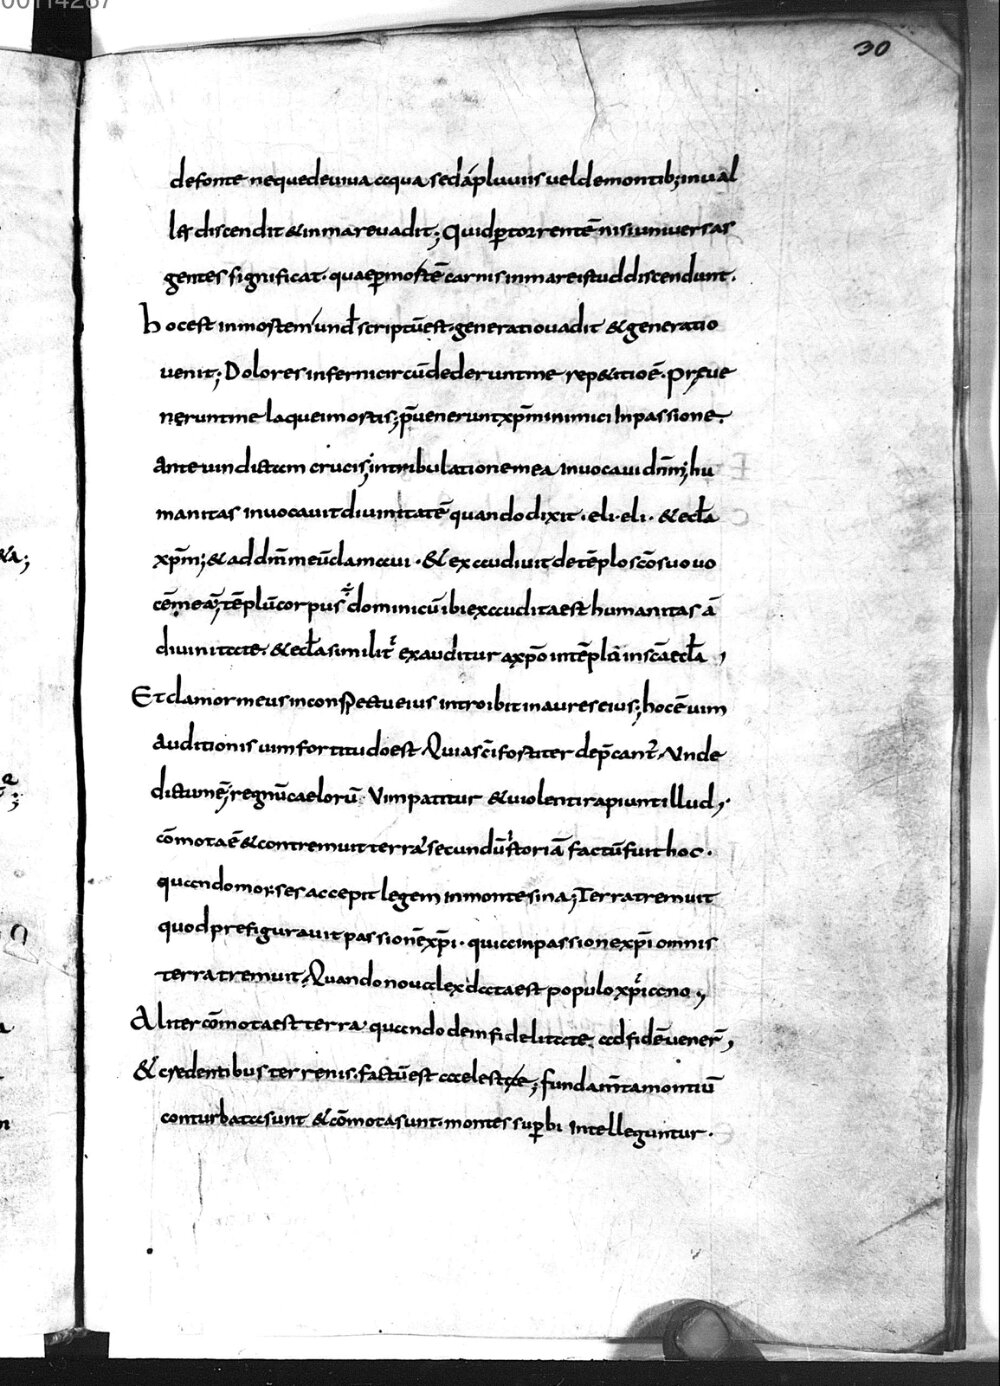 00114287
30
defonte nequedeuiua aqua sedápluuiis ueldemontib; inual
le discendit &inmareuadit; Quid ꝑtorrentē nisiuniuersas
gentes significat· quaeꝑmortē carnis inmareistuddiscendunt·
hocest inmortem und̄ scriptūest· generatiouadit &generatio
uenit; Dolores infernicircūdederuntme rep&itioē· Pręue
neruntme laqueimortis; p̄ueneruntxp̄m inimici Inpassione·
Ante uindictam crucis; intribulationemea inuocaui dn̄m; hu
manitas inuocauitdiuinitatē quandodixit· eli· eli· &eccl̄a
xp̄m; &addn̄m meūclamaui· &exaudiuit detēploscōsuouo
cēmeā; tēplūcorpus dominicū ibiexauditaest humanitas ā
diuinitate· &eccl̄asimilit̄ exauditur axp̄o intēplā inscāeccl̄a,
Etclamormeus inconspectueius introibit inaureseius; hocēuim
auditionis uimfortitudoest Quiascīfortiter dep̄cant̄· Unde
dictumē; regnūcaelorū Uimpatitur &uiolentirapiuntillud,·
cōmotaē&contremuit terra secundūstoriā factūfuit hoc·
quandomorses accepit legem inmontesina; Terratremuit
quodprefigurauit passionēxp̄i· quiainpassionexp̄i omnis
terratremuit, Quandonoualex dataest populoxp̄iano,
Aliter cōmotaest terra quandodeminfidelitate adfidēuener̄,
&credentibus terrenis· factūest caelestae; fundam̄tamontiū
conturbatasunt &cōmotasunt· montes suꝑbi Intelleguntur·